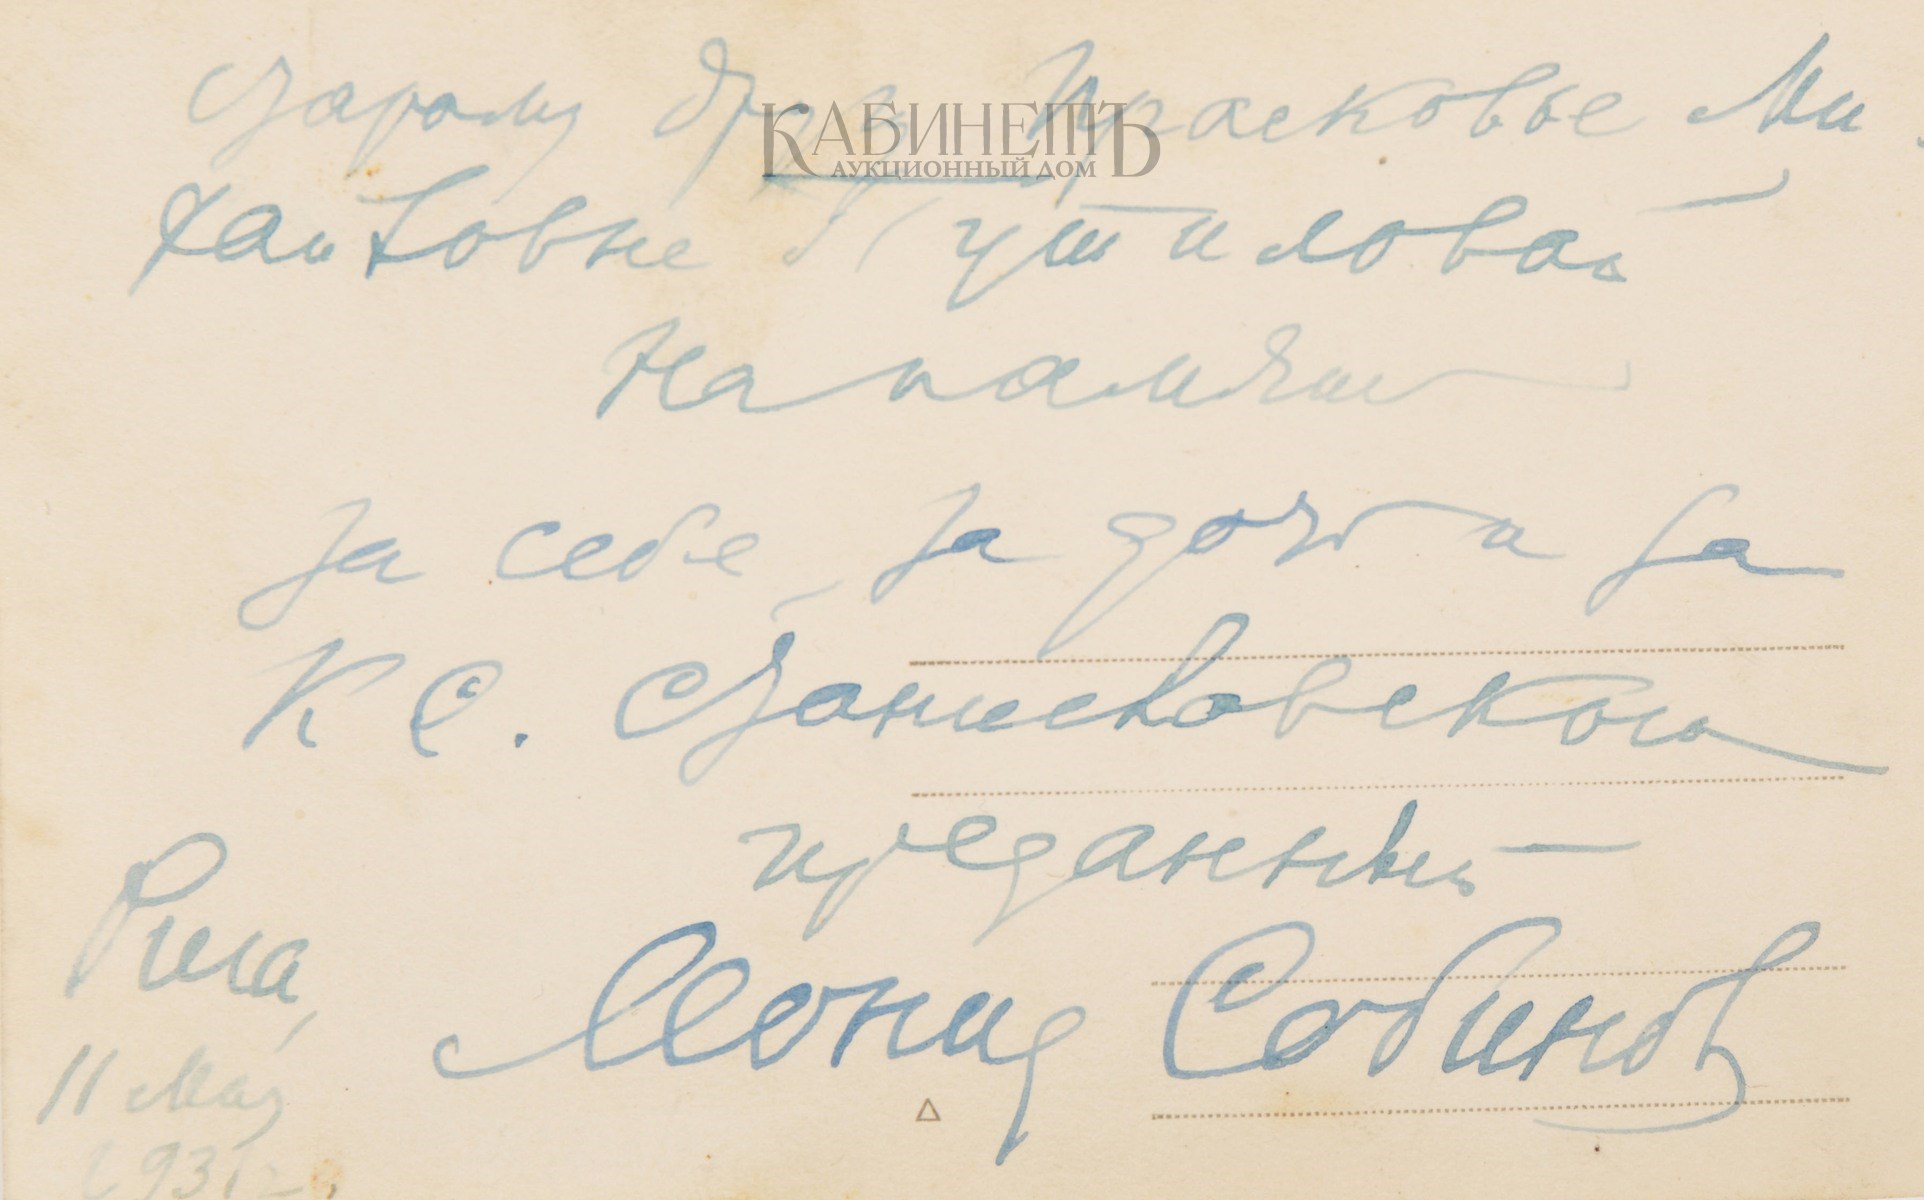 Старому другу Прасковье Ми
хайловне Путиловой
на память
за себя, за дочь и за
К С. Станиславского
преданный
Леонид Собинов
Рига,
11 мая
1931 г.
КАБИНЕТЪ
АУКЦИОННЫЙ ДОМ